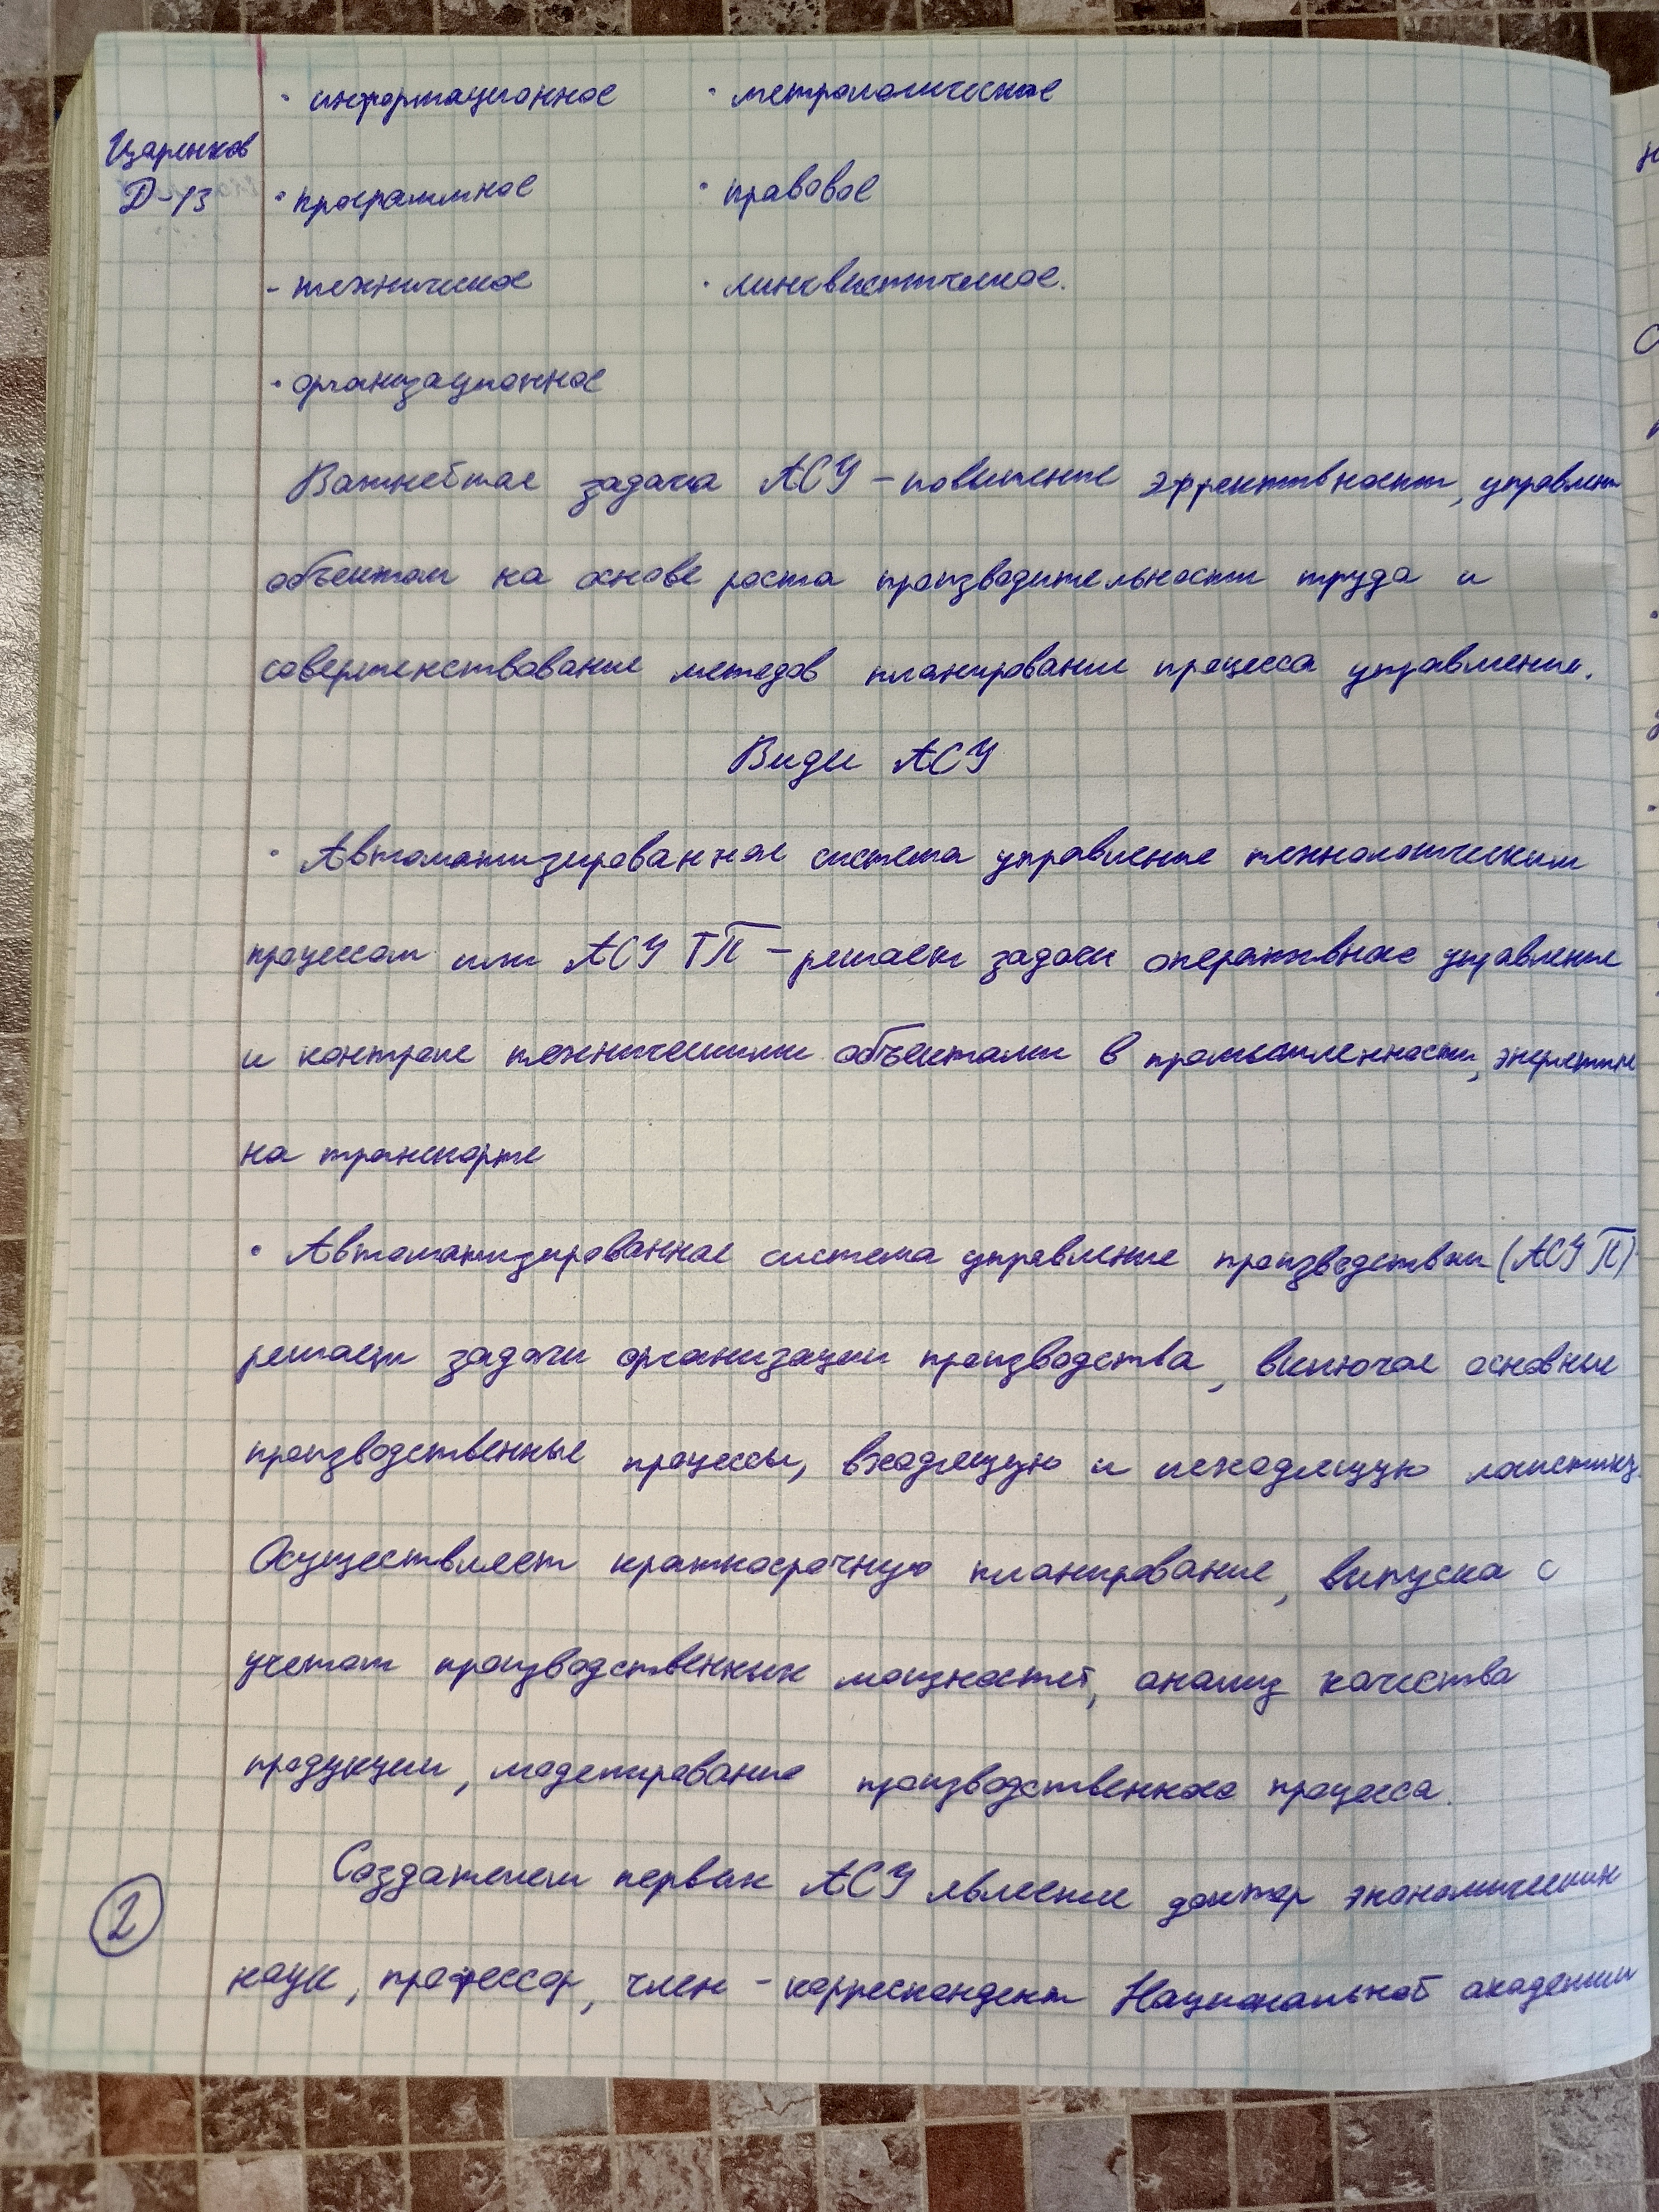 · информационное · метрологическое
Царенков
Д-13 · программное · правовое
- техническое · лингвистическое.
· организационное
Важнейшая задача АСУ – повышение эффективности, управлен
объектом на основе роста производительности труда и
совершенствование методов планирования процесса управления.
Виды АСУ
· Автоматизированная система управления технологическим
процессом или АСУ ТП – решает задачи оперативное управление
и контроля техническими объектами в промышленности, энергетике
на транспорте
· Автоматизированная система управления производством (АСУ П)
решает задачи организации производства, включая основные
производственные процессы, входящую и исходящую логистику.
Осуществляет краткосрочную планирование, выпуска с
учетом производственных мощностей, анализ качества
продукции, моделирование производственного процесса.
Создателем первых АСУ является доктор экономических
2
наук, профессор, член-корреспондент Национальной академии